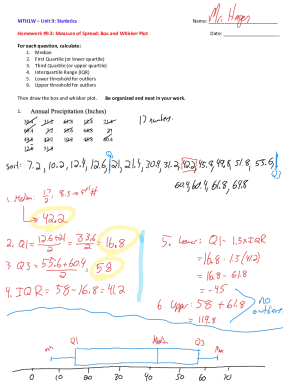 MTH1W – Unit 9: Statistics
Name: Mr. Hagen
Homework #9.3: Measure of Spread: Box and Whisker Plot
Date:
For each question, calculate:
1. Median
2. First Quartile (or lower quartile)
3. Third Quartile (or upper quartile)
4. Interquartile Range (IQR)
5. Lower threshold for outliers
6. Upper threshold for outliers
Then draw the box and whisker plot. Be organized and neat in your work.
1. Annual Precipitation (Inches)
17 numbers
sort: 7.2, 10.2, 12.4, 12.6, 21, 21.4, 30.8, 31.2, 42.2, 45.8, 49.8, 51.8, 55.6,
60.4, 60.4, 61.8, 69.8
Q3
1. Median: 17/2, 8.5 → 9th #
↳ 42.2
2. Q1 = 12.6+21/2 = 33.6/2 = 16.8
3. Q3 = 55.6+60.4/2 = 58
4. IQR = 58 - 16.8 = 41.2
5. Lower: Q1 - 1.5xIQR
= 16.8 - 1.5(41.2)
= 16.8 - 61.8
= -45
6. Upper: 58 + 61.8
= 119.8
no outliers
min Q1 Median Q3 Max
0 10 20 30 40 50 60 70